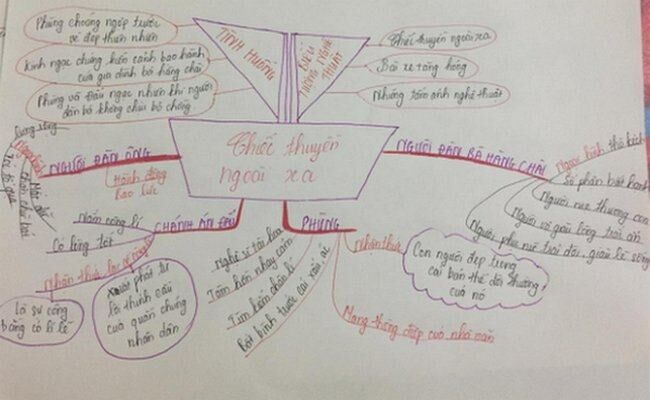 Phùng choáng ngợp trước
vẻ đẹp thiên nhiên
Kinh ngạc chứng kiến cảnh bạo hành
của gia đình bà hàng chài
Phùng và Đẩu ngạc nhiên khi người
đàn bà không chịu bỏ chồng
TÌNH HUỐNG
BIỂU
TƯỢNG NGHỆ
THUẬT
Chiếc thuyền ngoài xa
Bãi xe tăng hỏng
Những tấm ảnh nghệ thuật
Chiếc thuyền
ngoài xa
NGƯỜI ĐÀN ÔNG
Ngoại hình
Hành động
bạo lực
NGƯỜI ĐÀN BÀ HÀNG CHÀI
Ngoại hình thô kệch
Số phận bất hạnh
Người mẹ thương con
Người vợ giàu lòng trắc ẩn
Người phụ nữ trải đời, giàu lẽ sống
CHÁNH ÁN ĐẨU
Nắm công lí
Có lòng tốt
Nhận thức
Là sự công
bằng có lí lẽ
Xuất phát từ
lời thỉnh cầu
của quần chúng
nhân dân
PHÙNG
Nghệ sĩ tài hoa
Tâm hồn nhạy cảm
Tìm kiếm chân lí
Bất bình trước cái xấu, ác
Nhận thức
Con người đẹp trong
cái bản thể đời thường
của nó
Mang thông điệp của nhà văn